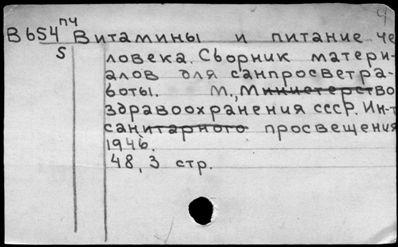 4
В654 пч Витамины и питание че
S ловека. Сборник матери-
алов для санпросветра-
боты. М., Министерство
здравоохранения СССР. Ин-т
санитарного просвещения
1946.
48, 3 стр.